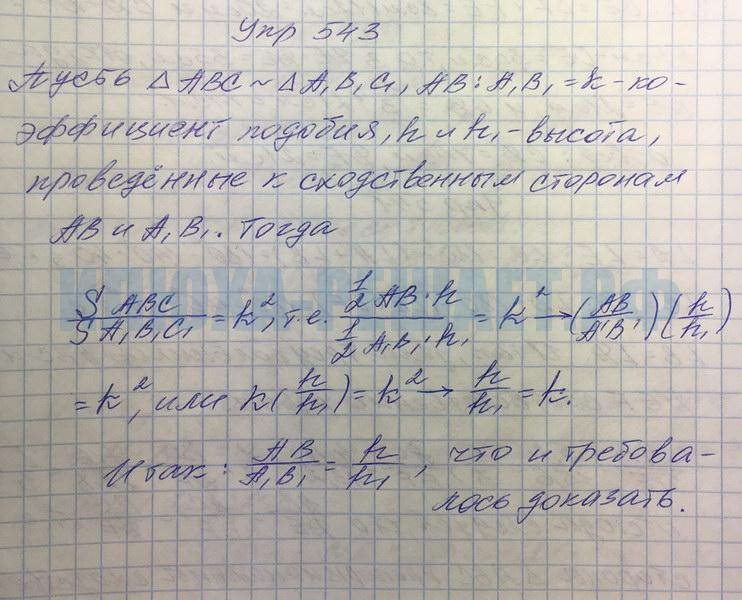 Упр 543
Пусть △ ABC ~ △ A₁B₁C₁, AB : A₁B₁ = k - ко-
эффициент подобия, h и h₁ - высота,
проведённые к сходственным сторонам
AB и A₁B₁. Тогда
S ABC / S A₁B₁C₁ = k², т.е. (1/2 AB · h) / (1/2 A₁B₁ · h₁) = k² → (AB / A'B') (h / h₁)
= k², или k (h / h₁) = k² → h / h₁ = k.
Итак: AB / A₁B₁ = h / h₁, что и требова-
лось доказать.